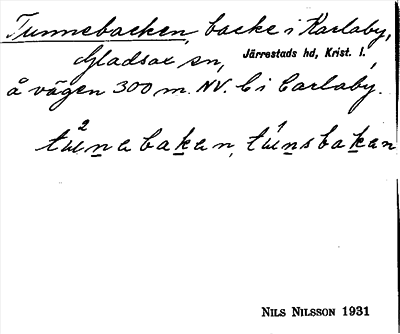 Tunnebacken, backe i Karlaby,
Gladsax sn, Järrestads hd, Krist. l.,
å vägen 300 m. NV. C i Carlaby.
tu²nabakan, tu¹nsbakan
NILS NILSSON 1931